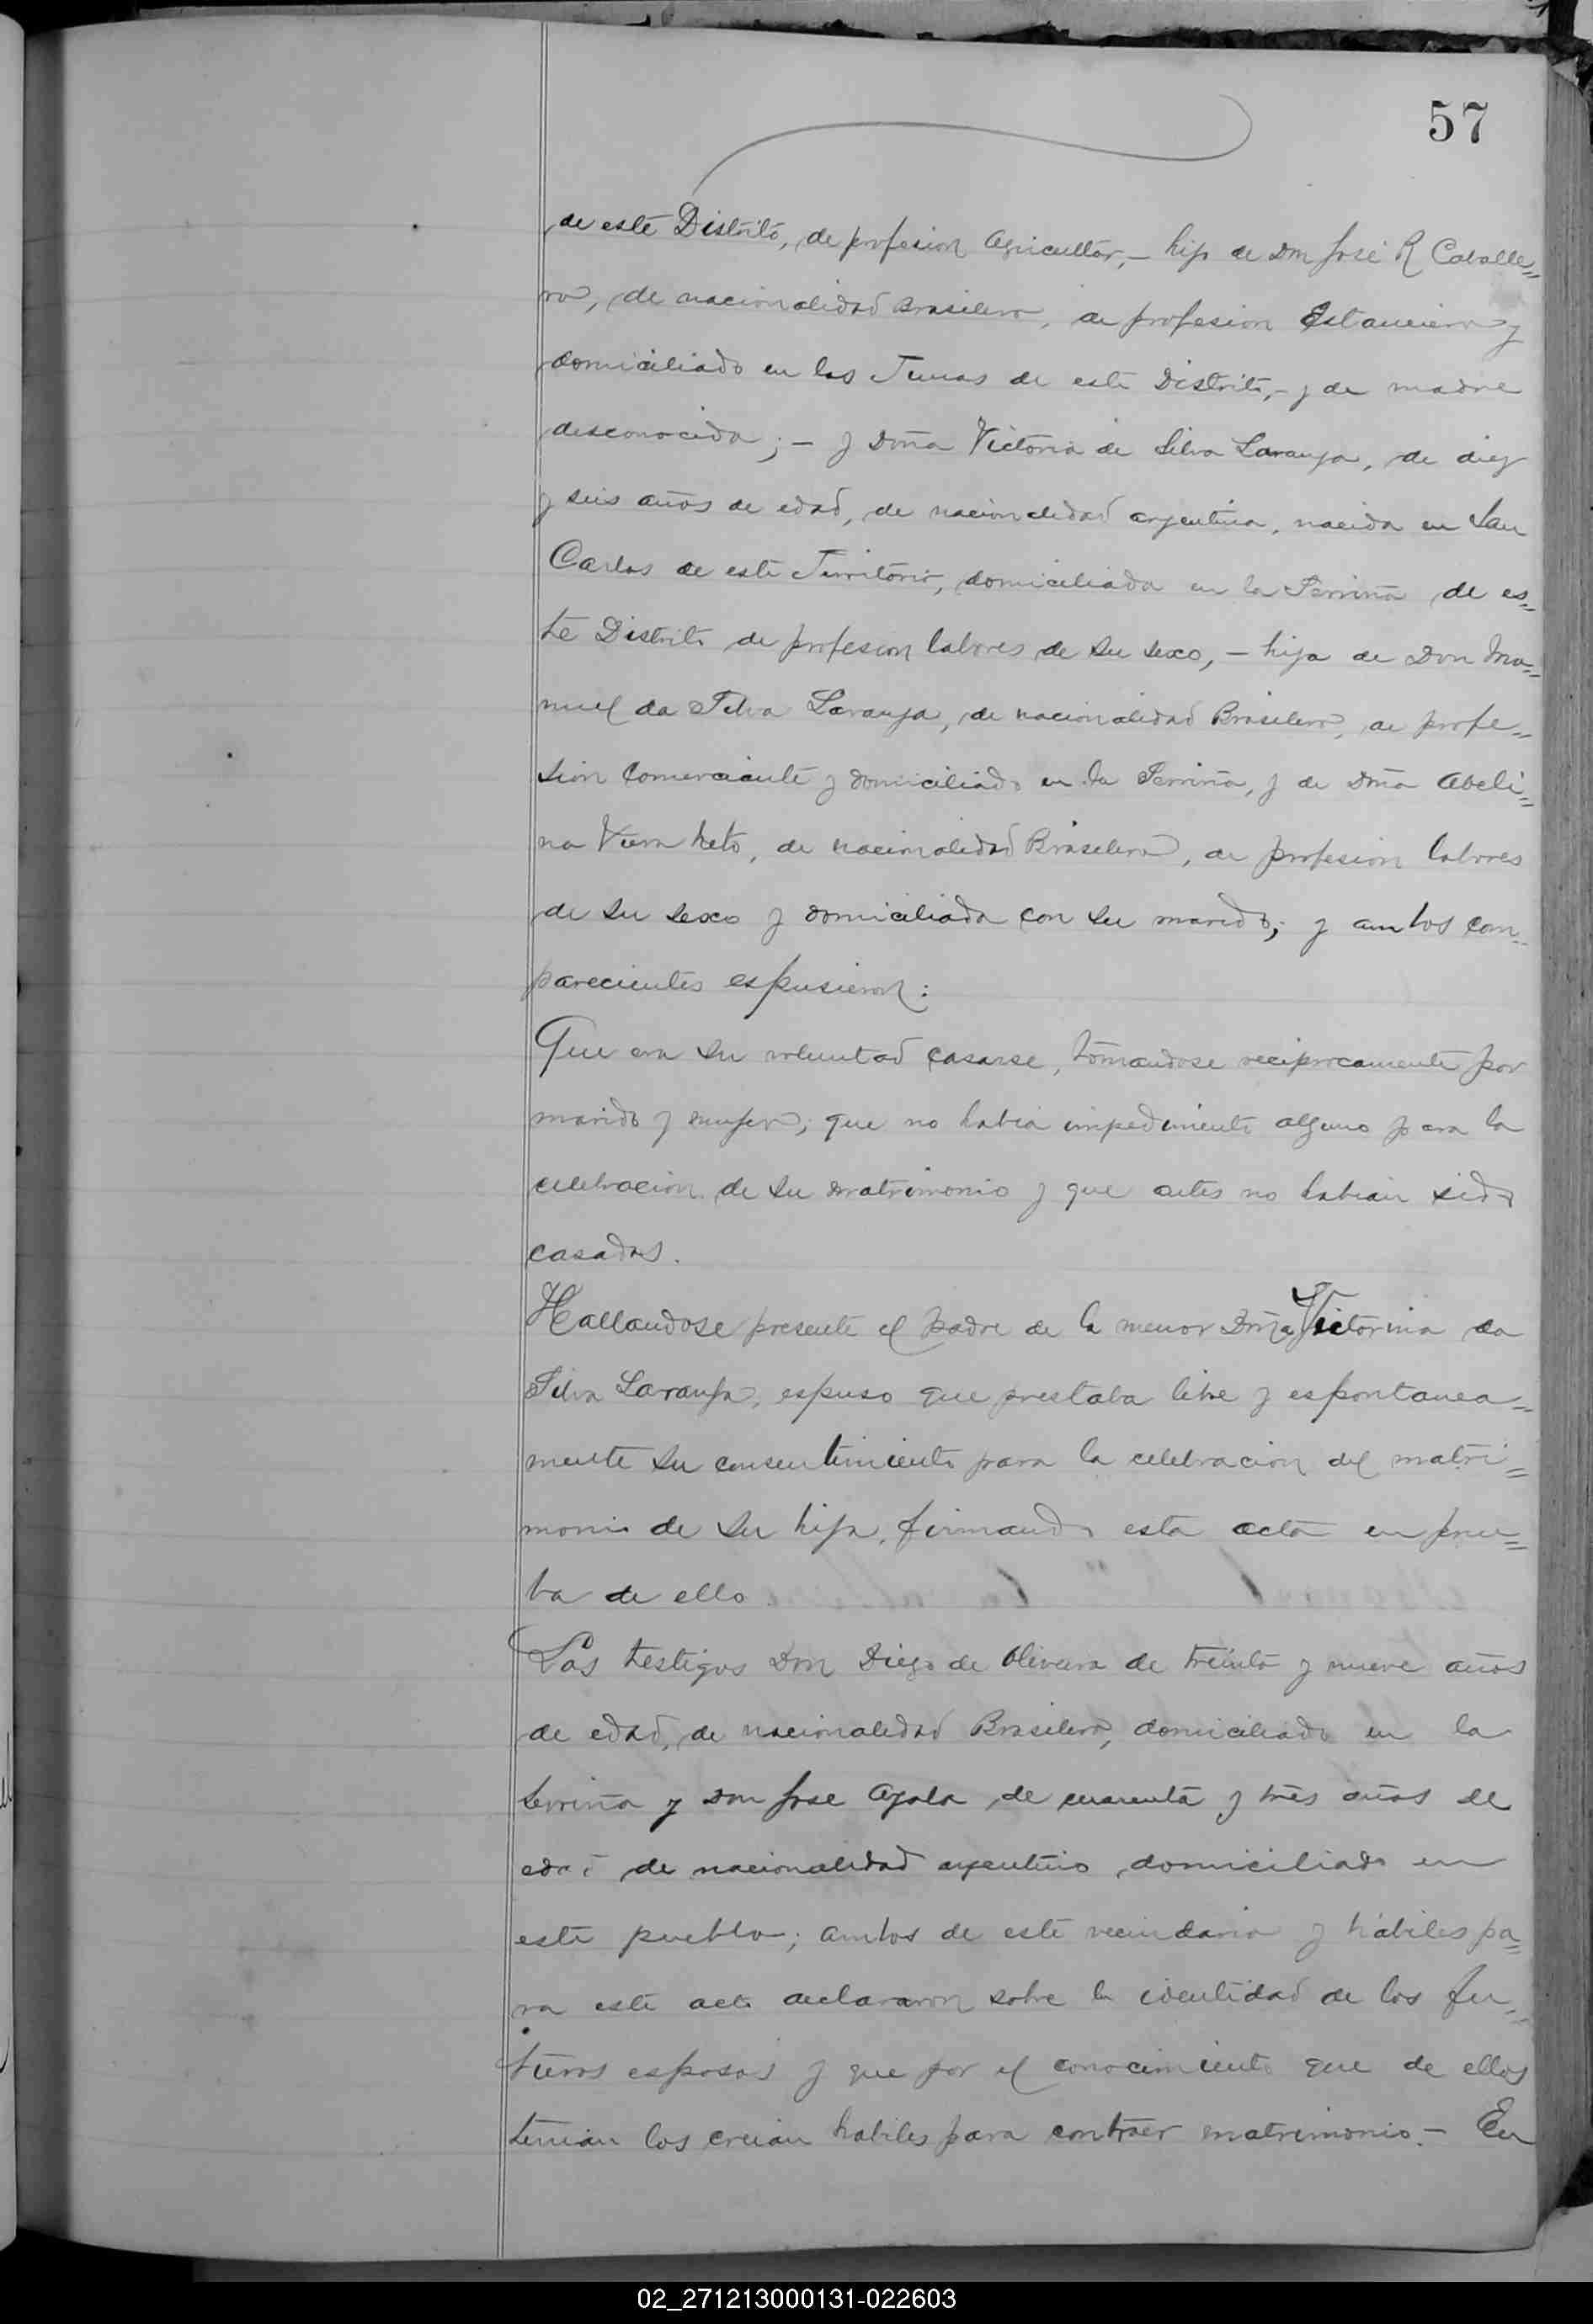 57
de este Distrito, de profesion Agricultor, – hijo de Don José R Caballe=
ro, de nacionalidad Brasilera, de profesion Estanciero y
domiciliado en las Tunas de este Distrito, – y de madre
desconocida; – y Doña Victoria de Silva Laranja, de diez
y seis años de edad, de nacionalidad argentina, nacida en San
Carlos de este Territorio, domiciliada en la Serriña de es=
te Distrito de profesion labores de su sexo, – hija de Don Ma=
nuel da Silva Laranja, de nacionalidad Brasilero, de profe=
sion Comerciante y domiciliado en la Serriña, y de Dña Abeli=
na Viera Neto, de nacionalidad Brasilera, de profesion labores
de su sexo y domiciliada con su marido; y ambos com=
parecientes espusieron:
Que era su voluntad casarse, tomandose reciprocamente por
marido y mujer; que no habia impedimento alguno para la
celebracion de su matrimonio y que antes no habian sido
casados.
Hallandose presente el padre de la menor Dña Victorina da
Silva Laranja, espuso que prestaba libre y espontanea=
mente su consentimiento para la celebracion del matri=
monio de su hija, firmando esta acta en prue=
ba de ello.
Los testigos Don Diego de Olivera de treinta y nueve años
de edad, de nacionalidad Brasilero, domiciliado en la
Serriña y Don Jose Ayala de cuarenta y tres años de
edad de nacionalidad argentino domiciliado en
este pueblo; ambos de este vecindario y hábiles pa=
ra este acto declararon sobre la identidad de los fu=
turos esposos y que por el conocimiento que de ellos
tenian los creian habiles para contraer matrimonio. – En
02_271213000131-022603